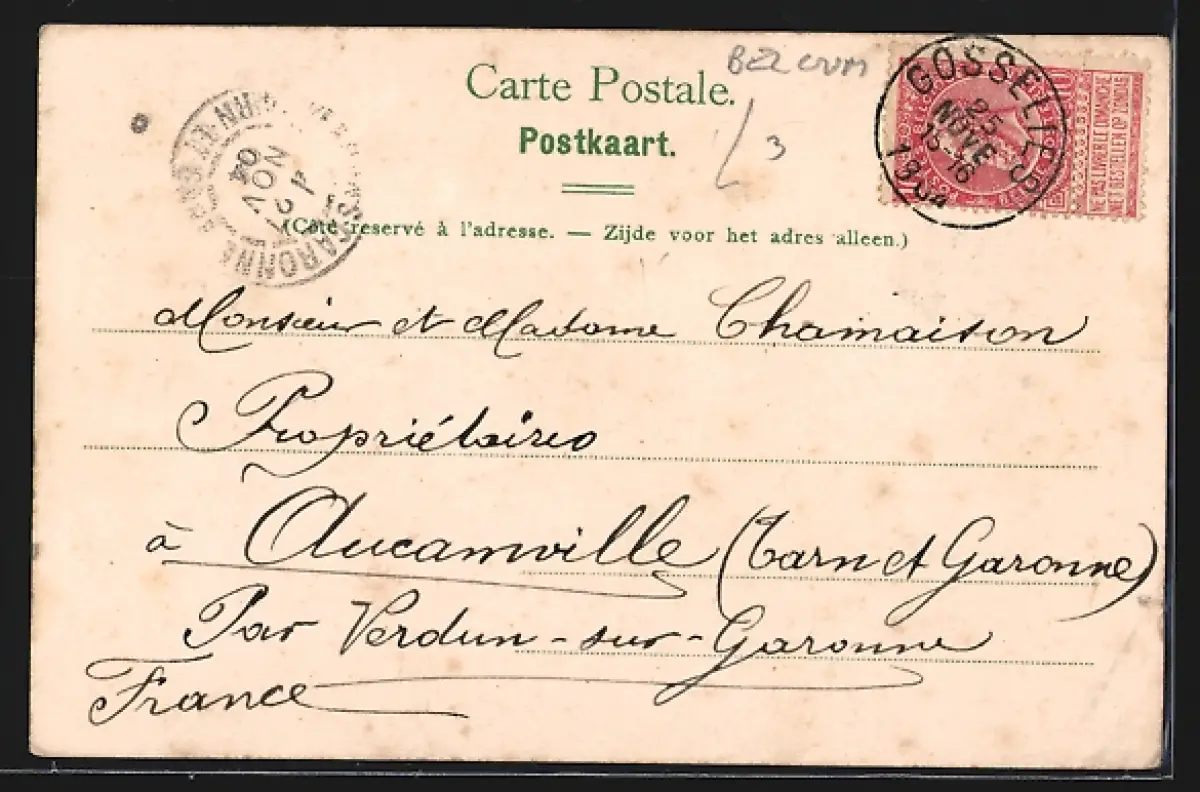 BELGIUM
Carte Postale.
3
Postkaart.
(Côté reservé à l'adresse. — Zijde voor het adres alleen.)
GOSSELIES
25
NOVE
15-16
1904
10
NE PAS LIVRER LE DIMANCHE
NIET BESTELLEN OP ZONDAG
NOV
04
GARONNE
Monsieur et Madame Chamaison
Propriétaires
à Aucamville (Tarn et Garonne)
Par Verdun-sur-Garonne
France